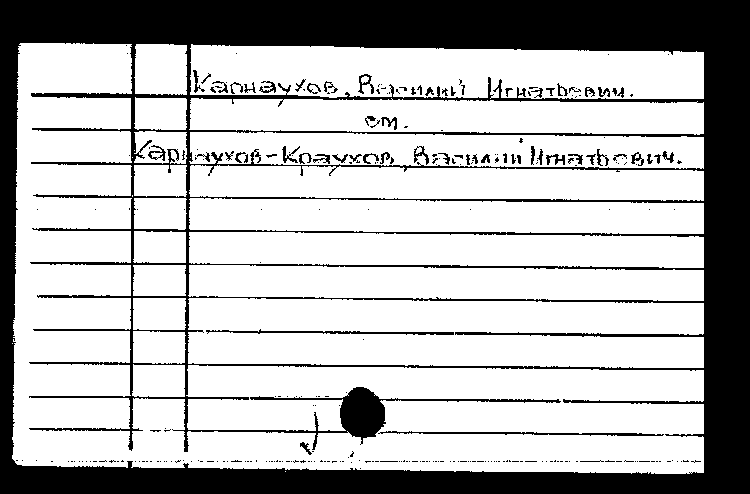 Карнаухов, Василий Игнатьевич.
см.
Карнаухов-Краухов, Василий Игнатьевич.